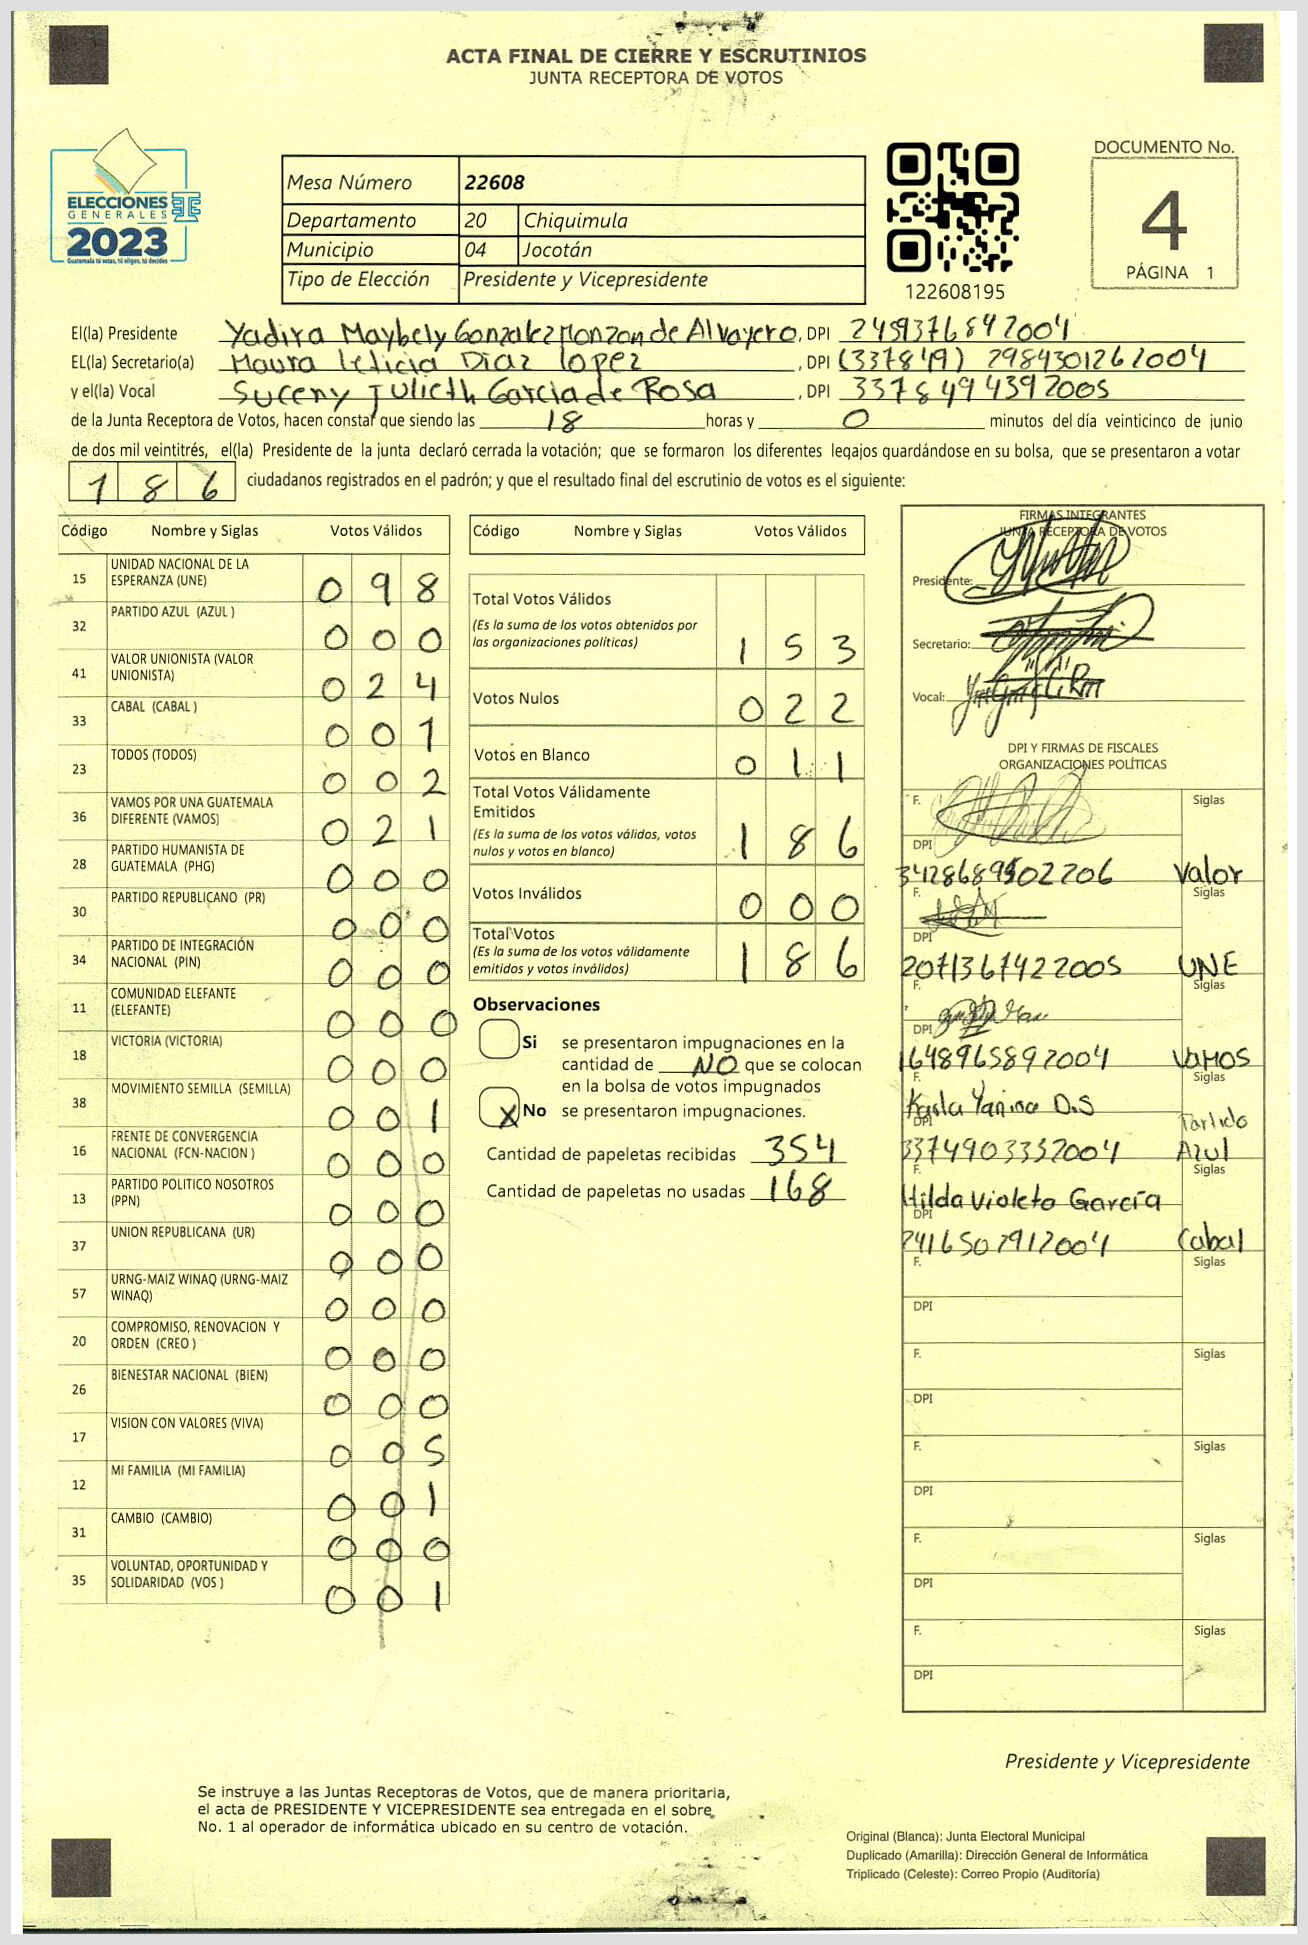 ACTA FINAL DE CIERRE Y ESCRUTINIOS
JUNTA RECEPTORA DE VOTOS
ELECCIONES
GENERALES
2023
Guatemala tú votas, tú eliges, tú decides
Mesa Número 22608
Departamento 20 Chiquimula
Municipio 04 Jocotán
Tipo de Elección Presidente y Vicepresidente
122608195
DOCUMENTO No.
4
PÁGINA 1
El(la) Presidente Yadira Maybely Gonzalez Monzon de Alvayero, DPI 2459376842004
EL(la) Secretario(a) Maura leticia Diaz lopez, DPI (337849) 2984301262004
y el(la) Vocal Suceny Julieth Garcia de Rosa, DPI 3378494392005
de la Junta Receptora de Votos, hacen constar que siendo las 18 horas y 0 minutos del día veinticinco de junio
de dos mil veintitrés, el(la) Presidente de la junta declaró cerrada la votación; que se formaron los diferentes legajos guardándose en su bolsa, que se presentaron a votar
186 ciudadanos registrados en el padrón; y que el resultado final del escrutinio de votos es el siguiente:
Código Nombre y Siglas Votos Válidos
15 UNIDAD NACIONAL DE LA ESPERANZA (UNE) 098
32 PARTIDO AZUL (AZUL ) 000
41 VALOR UNIONISTA (VALOR UNIONISTA) 024
33 CABAL (CABAL ) 001
23 TODOS (TODOS) 002
36 VAMOS POR UNA GUATEMALA DIFERENTE (VAMOS) 021
28 PARTIDO HUMANISTA DE GUATEMALA (PHG) 000
30 PARTIDO REPUBLICANO (PR) 000
34 PARTIDO DE INTEGRACIÓN NACIONAL (PIN) 000
11 COMUNIDAD ELEFANTE (ELEFANTE) 000
18 VICTORIA (VICTORIA) 000
38 MOVIMIENTO SEMILLA (SEMILLA) 001
16 FRENTE DE CONVERGENCIA NACIONAL (FCN-NACION ) 000
13 PARTIDO POLITICO NOSOTROS (PPN) 000
37 UNION REPUBLICANA (UR) 000
57 URNG-MAIZ WINAQ (URNG-MAIZ WINAQ) 000
20 COMPROMISO, RENOVACION Y ORDEN (CREO ) 000
26 BIENESTAR NACIONAL (BIEN) 000
17 VISION CON VALORES (VIVA) 005
12 MI FAMILIA (MI FAMILIA) 001
31 CAMBIO (CAMBIO) 000
35 VOLUNTAD, OPORTUNIDAD Y SOLIDARIDAD (VOS ) 001
Código Nombre y Siglas Votos Válidos
Total Votos Válidos
(Es la suma de los votos obtenidos por
las organizaciones políticas) 153
Votos Nulos 022
Votos en Blanco 011
Total Votos Válidamente
Emitidos
(Es la suma de los votos válidos, votos
nulos y votos en blanco) 186
Votos Inválidos 000
Total Votos
(Es la suma de los votos válidamente
emitidos y votos inválidos) 186
Observaciones
Si se presentaron impugnaciones en la
cantidad de NO que se colocan
en la bolsa de votos impugnados
X No se presentaron impugnaciones.
Cantidad de papeletas recibidas 354
Cantidad de papeletas no usadas 168
FIRMAS INTEGRANTES
JUNTA RECEPTORA DE VOTOS
Presidente:
Secretario:
Vocal:
DPI Y FIRMAS DE FISCALES
ORGANIZACIONES POLÍTICAS
F. Siglas
DPI
3428689502206 Valor
F. Siglas
DPI
2071367422005 UNE
F. Siglas
DPI
1648965892004 VAMOS
F. Siglas
Karla Yanina D.S
DPI Partido
3374903352004 Azul
F. Siglas
Hilda Violeta García
DPI
2416507912004 Cabal
F. Siglas
DPI
F. Siglas
DPI
F. Siglas
DPI
F. Siglas
DPI
F. Siglas
DPI
Presidente y Vicepresidente
Se instruye a las Juntas Receptoras de Votos, que de manera prioritaria,
el acta de PRESIDENTE Y VICEPRESIDENTE sea entregada en el sobre
No. 1 al operador de informática ubicado en su centro de votación.
Original (Blanca): Junta Electoral Municipal
Duplicado (Amarilla): Dirección General de Informática
Triplicado (Celeste): Correo Propio (Auditoría)